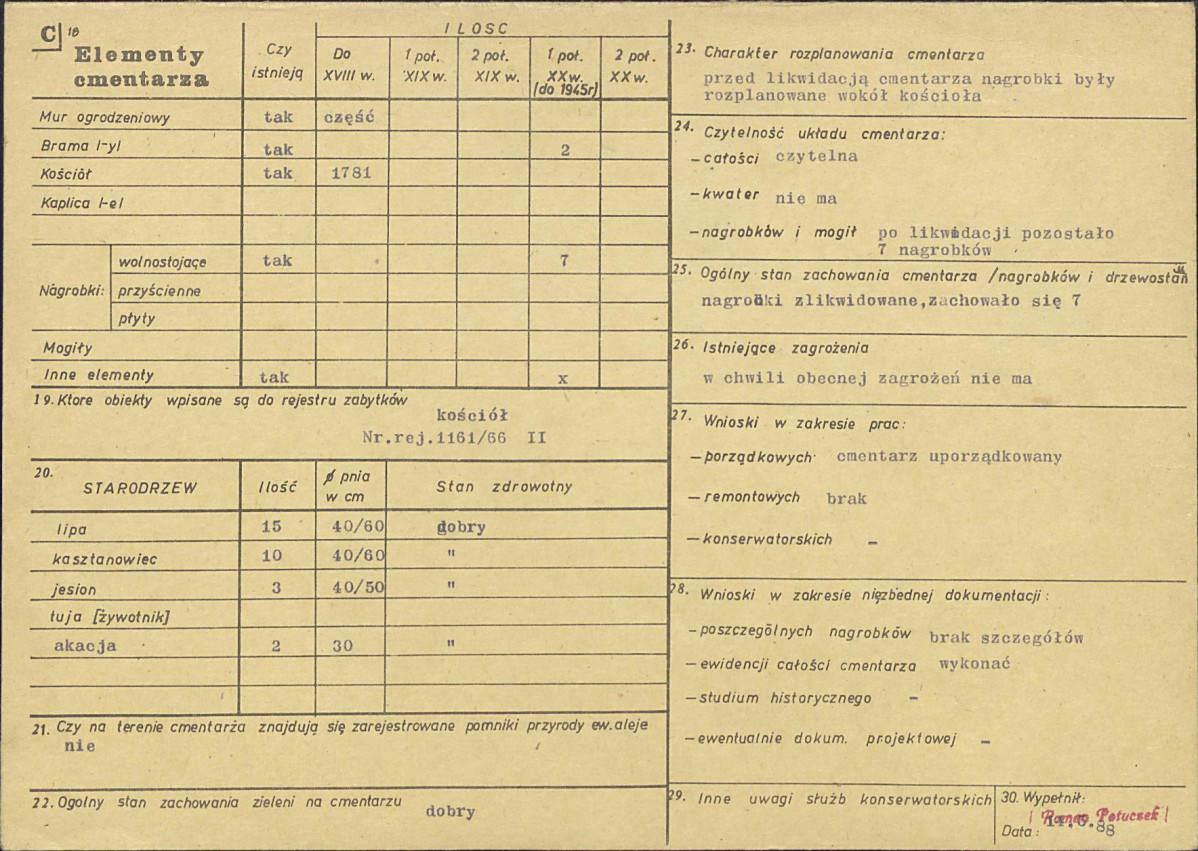 C 18
Elementy
cmentarza
Czy
istnieją
ILOSC
Do
XVIII w.
1 poł.
XIX w.
2 poł.
XIX w.
1 poł.
XX w.
(do 1945r)
2 poł.
XX w.
Mur ogrodzeniowy tak część
Brama I-yl tak 2
Kościół tak 1781
Kaplica I-el
Nagrobki:
wolnostojące tak 7
przyścienne
płyty
Mogiły
Inne elementy tak x
19. Ktore obiekty wpisane są do rejestru zabytków
kościół
Nr.rej.1161/66 II
20.
STARODRZEW Ilość ø pnia
w cm Stan zdrowotny
lipa 15 40/60 dobry
kasztanowiec 10 40/60 "
jesion 3 40/50 "
tuja [żywotnik]
akacja 2 30 "
21. Czy na terenie cmentarza znajdują się zarejestrowane pomniki przyrody ew. aleje
nie
22. Ogolny stan zachowania zieleni na cmentarzu
dobry
23. Charakter rozplanowania cmentarza
przed likwidacją cmentarza nagrobki były
rozplanowane wokół kościoła
24. Czytelność układu cmentarza:
- całości czytelna
- kwater nie ma
- nagrobków i mogił po likwidacji pozostało
7 nagrobków
25. Ogólny stan zachowania cmentarza /nagrobków i drzewostan
nagrobki zlikwidowane,zachowało się 7
26. Istniejące zagrożenia
w chwili obecnej zagrożeń nie ma
27. Wnioski w zakresie prac:
- porządkowych cmentarz uporządkowany
- remontowych brak
- konserwatorskich -
28. Wnioski w zakresie niezbednej dokumentacji:
- poszczególnych nagrobków brak szczegółów
- ewidencji całości cmentarza wykonać
- studium historycznego -
- ewentualnie dokum. projektowej -
29. Inne uwagi służb konserwatorskich
30. Wypełnił:
Roman Potuczek
Data: 88